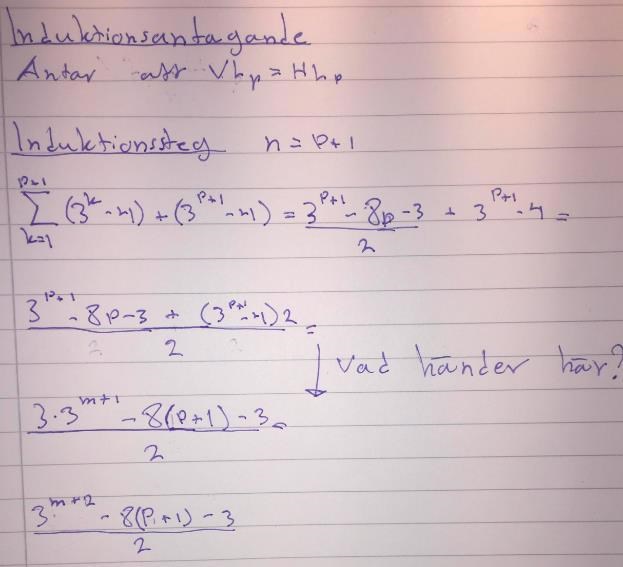 Induktionsantagande
Antar att VLp = HLp
Induktionssteg n = p+1
p+1
∑ (3^k - 4) + (3^(p+1) - 4) = (3^(p+1) - 8p - 3)/2 + 3^(p+1) - 4 =
k=1
(3^(p+1) - 8p - 3 + (3^(p+1) - 4)2)/2 =
↓ Vad händer här?
(3·3^(m+1) - 8(p+1) - 3)/2 =
(3^(m+2) - 8(p+1) - 3)/2